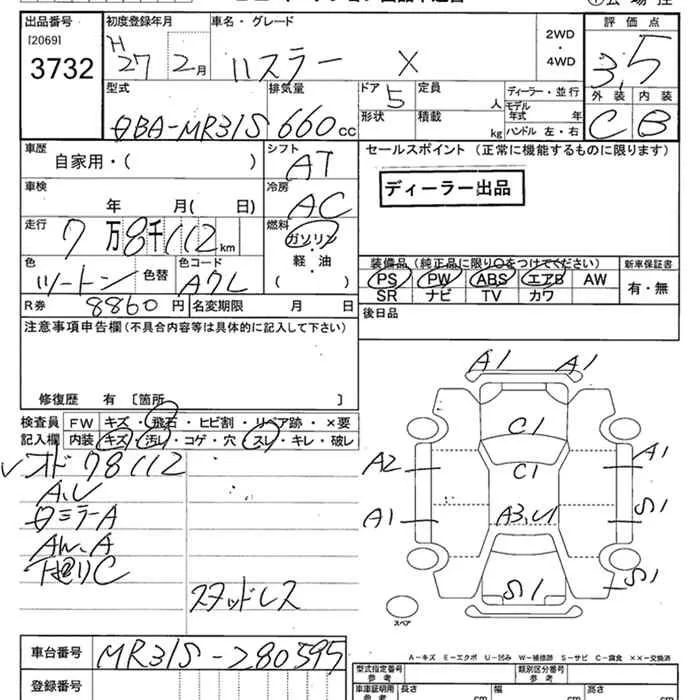 出品番号
[2069]
3732
初度登録年月
H27 2月
車名・グレード
ハスラー X
2WD
・
4WD
評価点
3.5
外装 内装
C B
型式
DBA-MR31S
排気量
660 cc
ドア 5
形状
定員 人
積載 kg
ディーラー・並行
モデル年式 年
ハンドル 左・右
車歴
自家用・( )
シフト
AT
車検
年 月( 日)
冷房
AC
走行
7万8千112km
燃料
ガソリン
・
軽・油
( )
色
ツートン 色替
色コード
A7L
R券 8860円 名変期限 月 日
セールスポイント (正常に機能するものに限ります)
ディーラー出品
装備品(純正品に限り○をつけてください) 新車保証書
PS PW ABS エアB AW
SR ナビ TV カワ
有・無
後日品
注意事項申告欄(不具合内容等は具体的に記入して下さい)
修復歴 有 〔箇所 〕
検査員記入欄
FW キズ・飛石・ヒビ割・リペア跡・×要
内装 キズ・汚レ・コゲ・穴・スレ・キレ・破レ
オド 78112
A,U
ミラーA
A
C
スタッドレス
A1 A1
C1
A2 C1 A1
A1 A3,U1 S1
S1 S1
スペア
A-キズ E-エクボ U-凹み W-補修跡 S-サビ C-腐食 ××-交換済
車台番号 MR31S-280595
登録番号
型式指定番号 参考
類別区分番号 参考
車庫証明用 参考
長さ cm
幅 cm
高さ cm